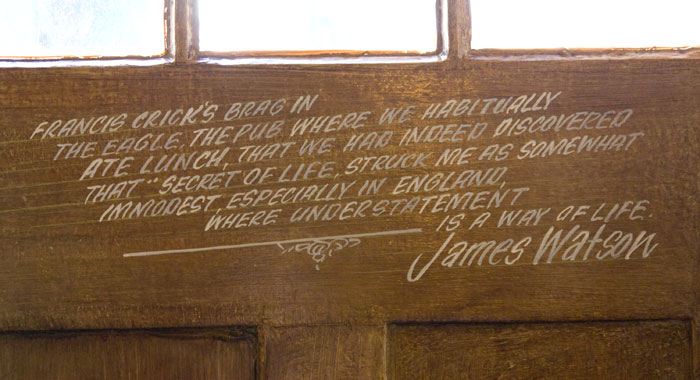 FRANCIS CRICK'S BRAG IN
THE EAGLE, THE PUB WHERE WE HABITUALLY
ATE LUNCH, THAT WE HAD INDEED DISCOVERED
THAT "SECRET OF LIFE, STRUCK ME AS SOMEWHAT
IMMODEST, ESPECIALLY IN ENGLAND,
WHERE UNDERSTATEMENT
IS A WAY OF LIFE.
James Watson